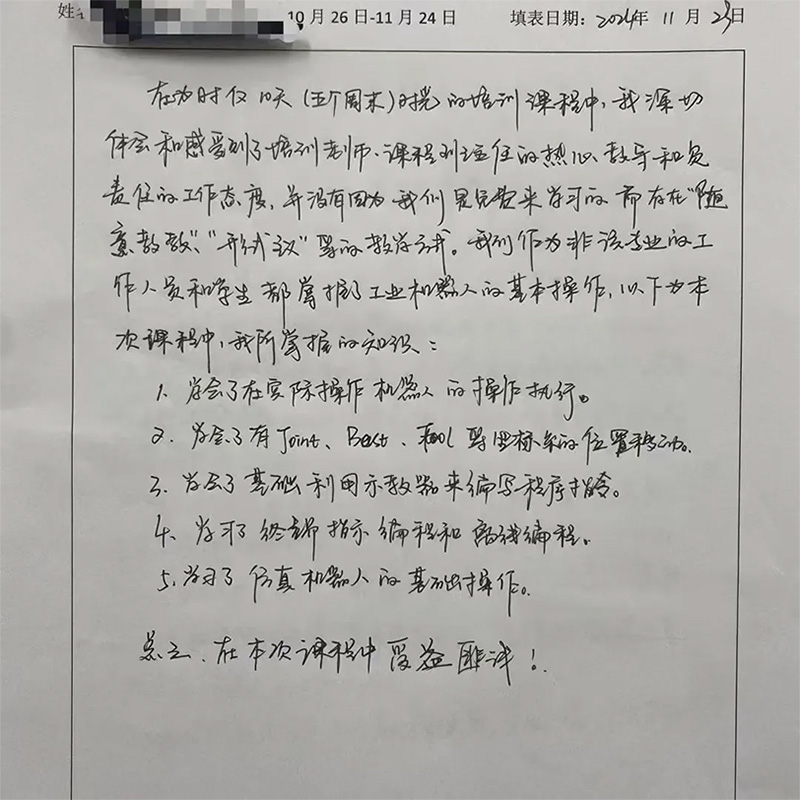 姓 10月26日-11月24日 填表日期：2024年 11 月 23日
在为时仅10天（五个周末）时光的培训课程中，我深切
体会和感受到了培训老师、课程班主任的热心教导和负
责任的工作态度，并没有因为我们是免费来学习的而存在“随
意教教”、“形式议”等的教学方式。我们作为非该专业的工
作人员和学生都掌握了工业机器人的基本操作，以下为本
次课程中，我所掌握的知识：
1、学会了在实际操作机器人的操作执行。
2、学会了有Joint、Base、Tool等坐标系的位置移动。
3、学会了基础利用示教器来编写程序指令。
4、学习了终端指示编程和离线编程。
5、学习了仿真机器人的基础操作。
总之、在本次课程中受益匪浅！